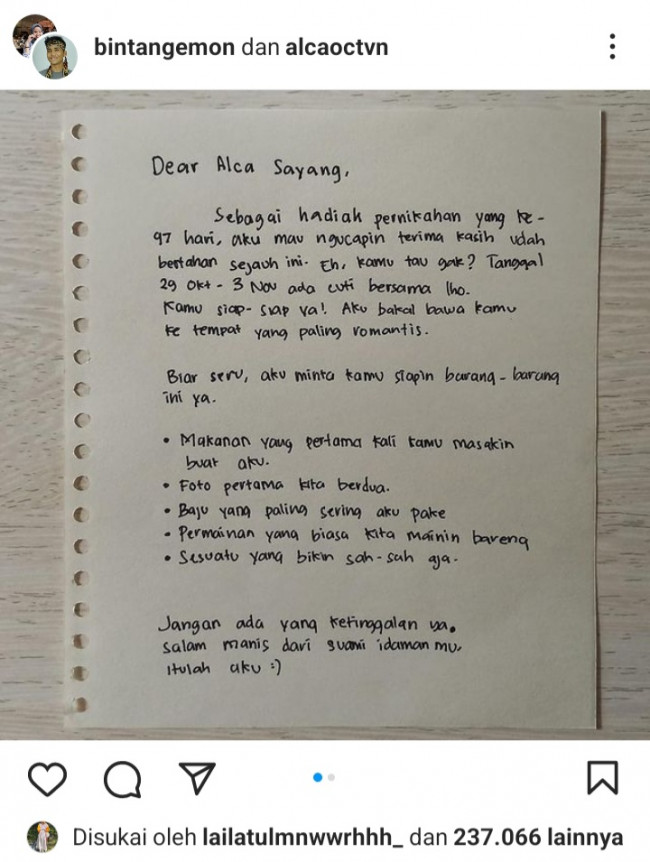 bintangemon dan alcaoctvn
Dear Alca Sayang,
Sebagai hadiah pernikahan yang ke-
97 hari, aku mau ngucapin terima kasih udah
bertahan sejauh ini. Eh, kamu tau gak? Tanggal
29 Okt - 3 Nov ada cuti bersama lho.
Kamu siap-siap ya! Aku bakal bawa kamu
ke tempat yang paling romantis.
Biar seru, aku minta kamu siapin barang-barang
ini ya.
• Makanan yang pertama kali kamu masakin
buat aku.
• Foto pertama kita berdua.
• Baju yang paling sering aku pake
• Permainan yang biasa kita mainin bareng
• Sesuatu yang bikin sah-sah aja.
Jangan ada yang ketinggalan ya.
Salam manis dari suami idaman mu.
Itulah aku :)
Disukai oleh lailatulmnwwrhhh_ dan 237.066 lainnya